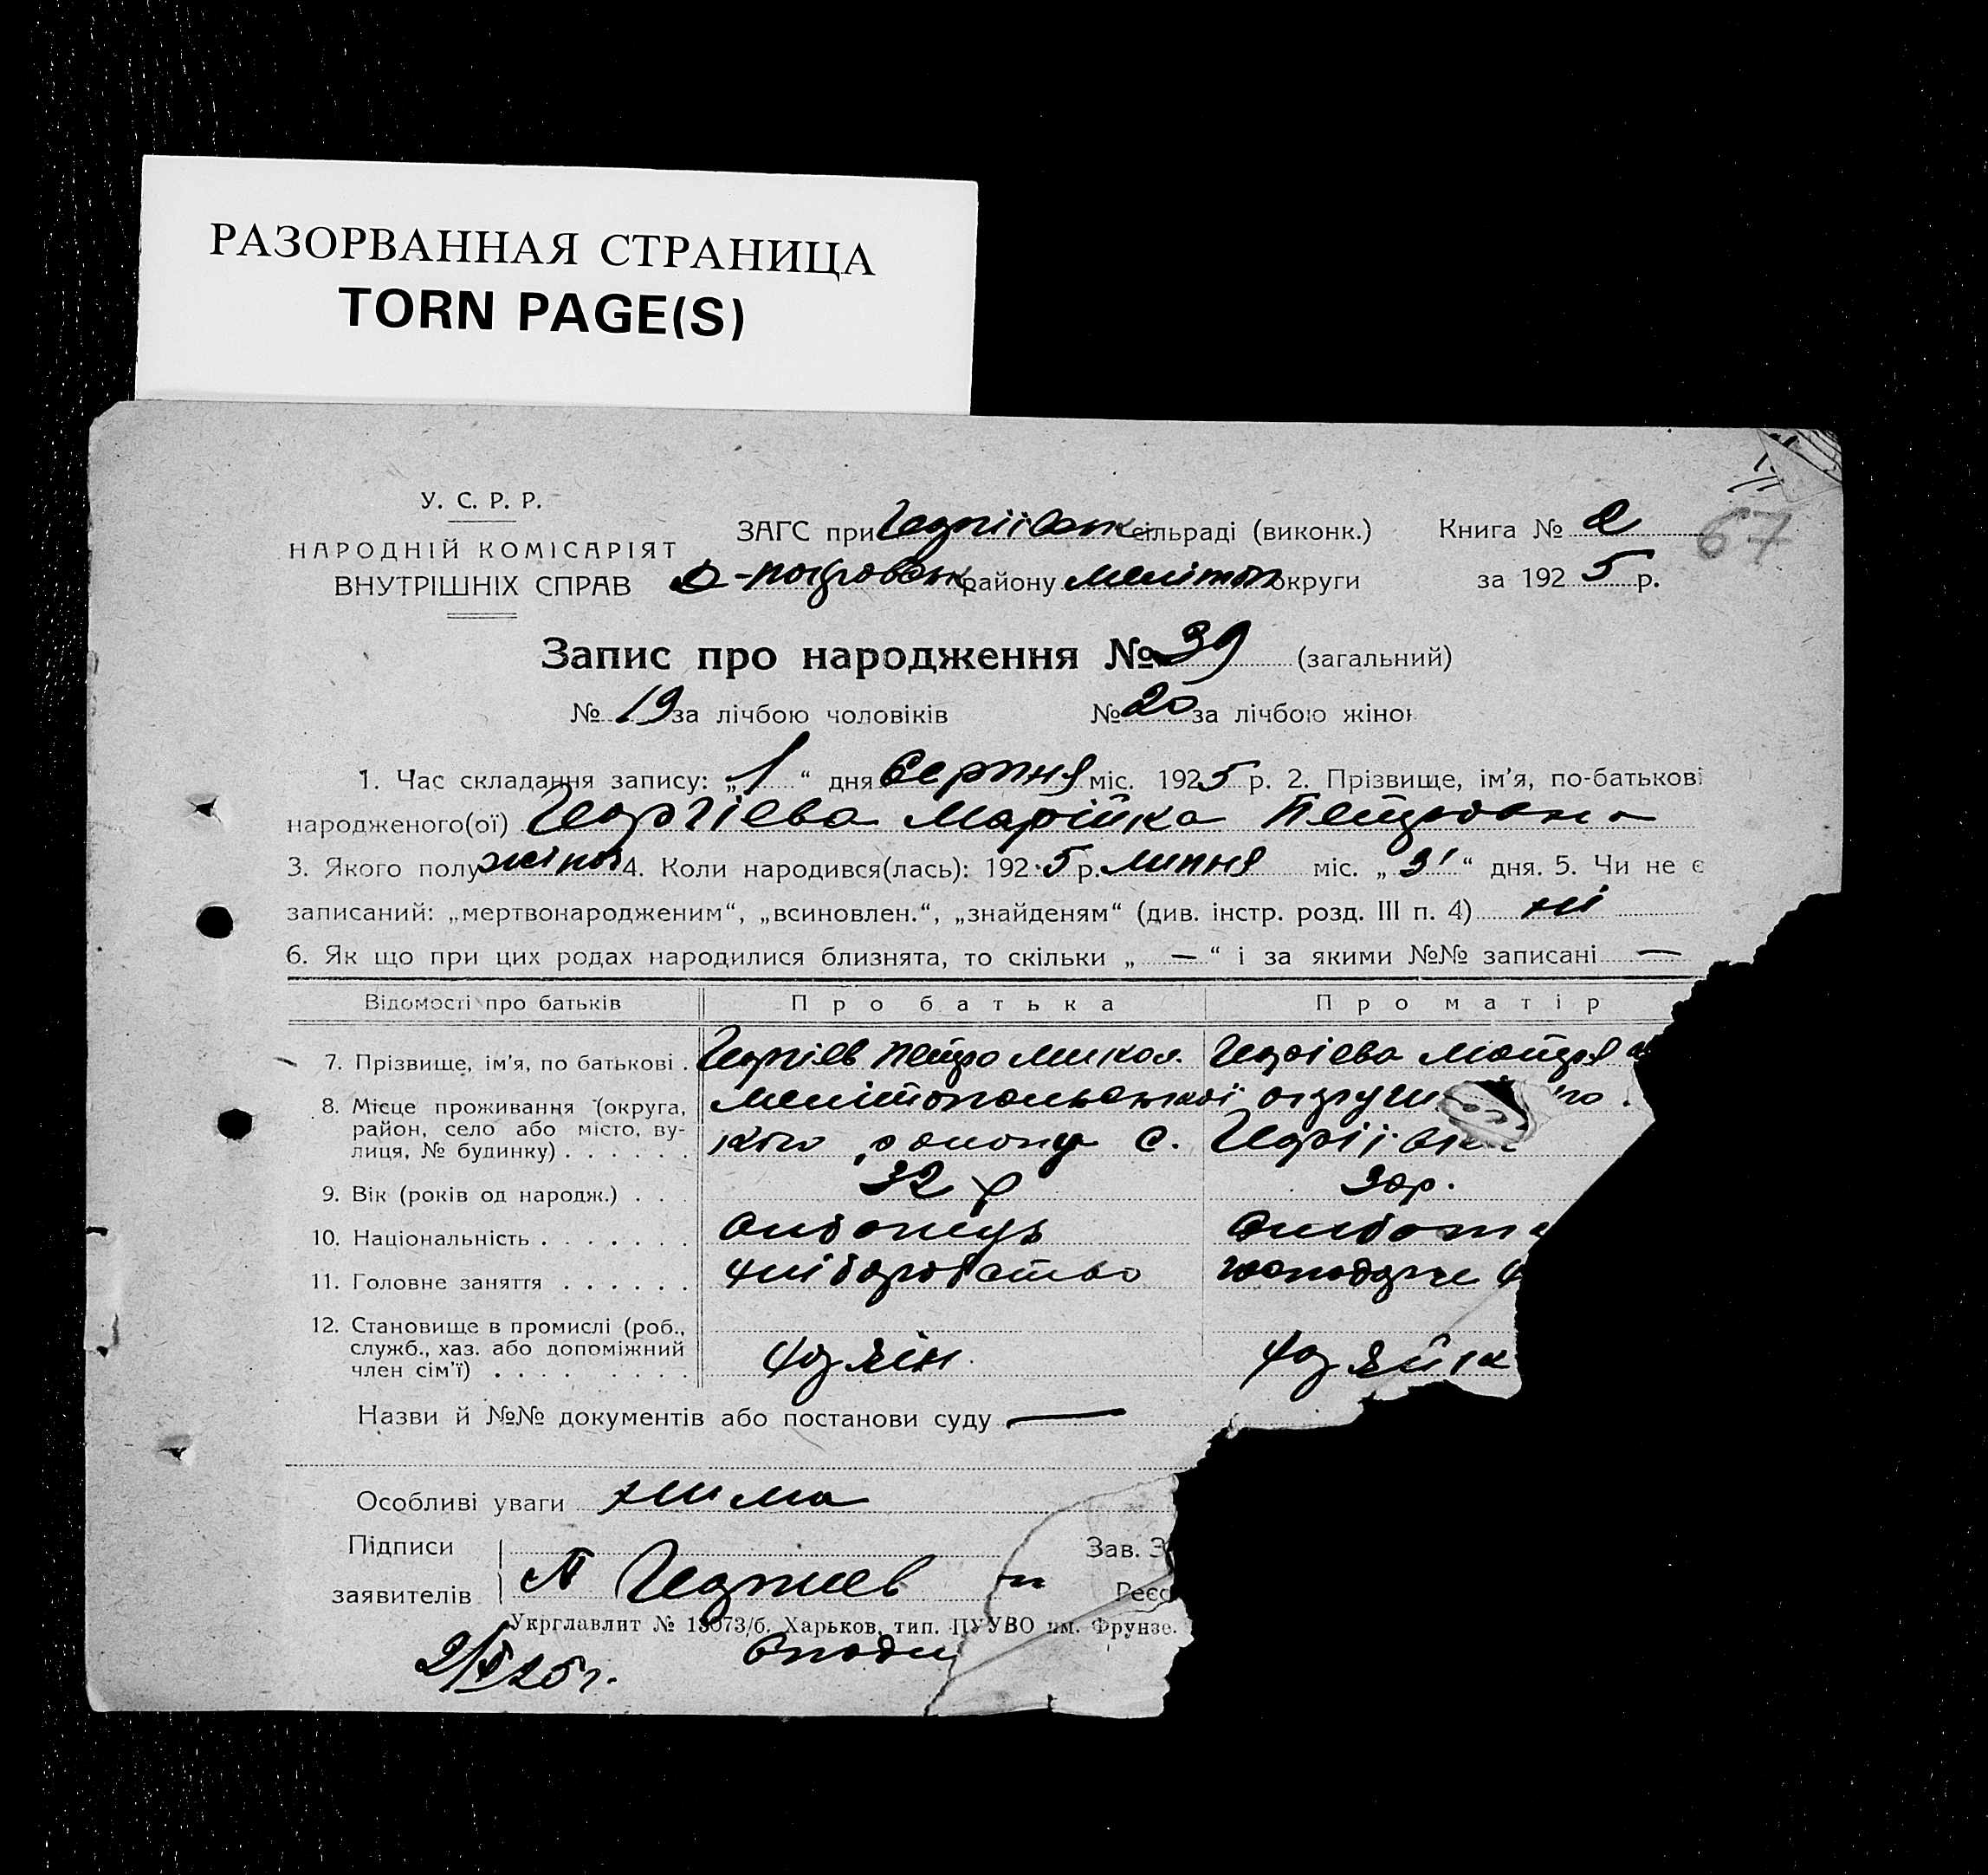 РАЗОРВАННАЯ СТРАНИЦА
TORN PAGE(S)
У. С. Р. Р.
НАРОДНІЙ КОМІСАРІЯТ
ВНУТРІШНІХ СПРАВ
ЗАГС при сільраді (виконк.) Книга № 2
67
району Мелітоп округи за 1925 р.
Запис про народження № 39 (загальний)
№ 19 за лічбою чоловіків № 20 за лічбою жінок
1. Час складання запису: „1“ дня Серпня міс. 1925 р. 2. Прізвище, ім’я, по-батькові
народженого(ої) Георгіева Марійка Петровна
3. Якого полу жіноч 4. Коли народився(лась): 1925 р. липня міс. „31“ дня. 5. Чи не є
записаний: „мертвонародженим“, „всиновлен.“, „знайденям“ (див. інстр. розд. III п. 4) ні
6. Як що при цих родах народилися близнята, то скільки „ — “ і за якими №№ записані —
Відомості про батьків Про батька Про матір
7. Прізвище, ім’я, по батькові . Георгієв Петро Микол. Георгієва
8. Місце проживання (округа, район, село або місто, вулиця, № будинку) . . . . . . Мелітопольської округи
кого району с.
9. Вік (років од народж.) . . 32 р 30р.
10. Національність . . . . . . .
11. Головне заняття . . . . . . хліборобство
12. Становище в промислі (роб., служб., хаз. або допоміжний член сім’ї) . . . . . . . . хозяїн. хозяйк
Назви й №№ документів або постанови суду —
Особливі уваги нима
Підписи Зав. З
заявителів П Георгиев Реєс
Укрглавлит № 13073/б. Харьков, тип. ПУУВО им. Фрунзе.